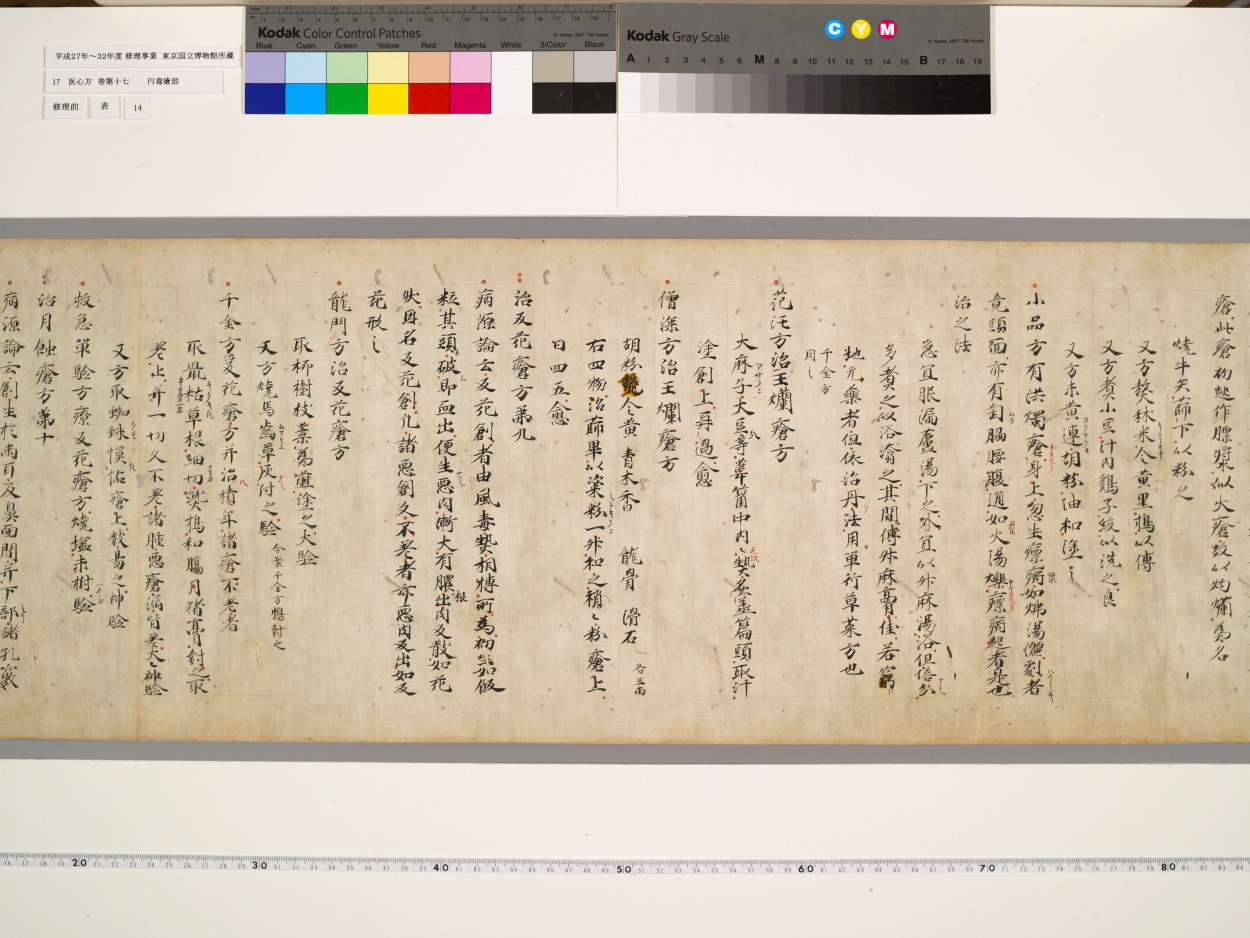 Kodak Color Control Patches
Blue Cyan Green Yellow Red Magenta White 3/Color Black
© Kodak, 2007 TM: Kodak
Kodak Gray Scale
C Y M
© Kodak, 2007 TM: Kodak
A 1 2 3 4 5 6 M 8 9 10 11 12 13 14 15 B 17 18 19
平成27年〜32年度 修理事業 東京国立博物館所蔵
17 医心方 巻第十七 円毒瘡部
修理前 表 14
瘡此瘡初起作膘漿似火瘡故以灼爛為名
燒牛矢篩下以粉之
又方熬秫米令黄黒搗以傅
又方煮小豆汁内鶏子絞以洗之良
又方末黄連胡粉油和塗之
小品方有洪燭瘡身上忽生瘭病如沸湯儷劇者
竟頭面亦有匈腰腹通如火湯爍瘭病起者是也
治之法
急宜服漏蘆湯下之外宜以升麻湯浴但倍分
多煮之以浴瀹之其間傅升麻膏佳若窮
地无藥者但依治丹法用單行草菜方也
千金方
同之
范汪方治王爛瘡方
大麻子大豆等葦筩中内熱炙篇頭取汁
塗創上再過愈
僧深方治王爛瘡方
胡粉令黄 青木香 龍骨 滑石 各三兩
右四物治篩畢以粢粉一升和之稍々粉瘡上
日四五愈
治反花瘡方第九
病源論云反花創者由風毒熱相搏所為初如飯
粒其頭破即血出便生悪肉漸大有根膿出肉反散如花
状因名反花創凡諸悪創久不差者亦悪肉反出如反
花形之
龍門方治反花瘡方
取柳樹枝葉為煎塗之大驗
又方燒馬齒草灰付之驗 今案千金方搗封之
千金方反花瘡方并治積年諸瘡不差者
取鼠粘草根細切熟搗和臈月猪膏封之取
差止并一切久不差諸腫悪瘡漏皆差大々神驗
又方取蜘蛛帖瘡上數易之神驗
救急單驗方療反花瘡方燒塩末付驗
治月蝕瘡方第十
病源論云創生於兩耳及鼻面間并下部諸孔竅
20 30 40 50 60 70 80